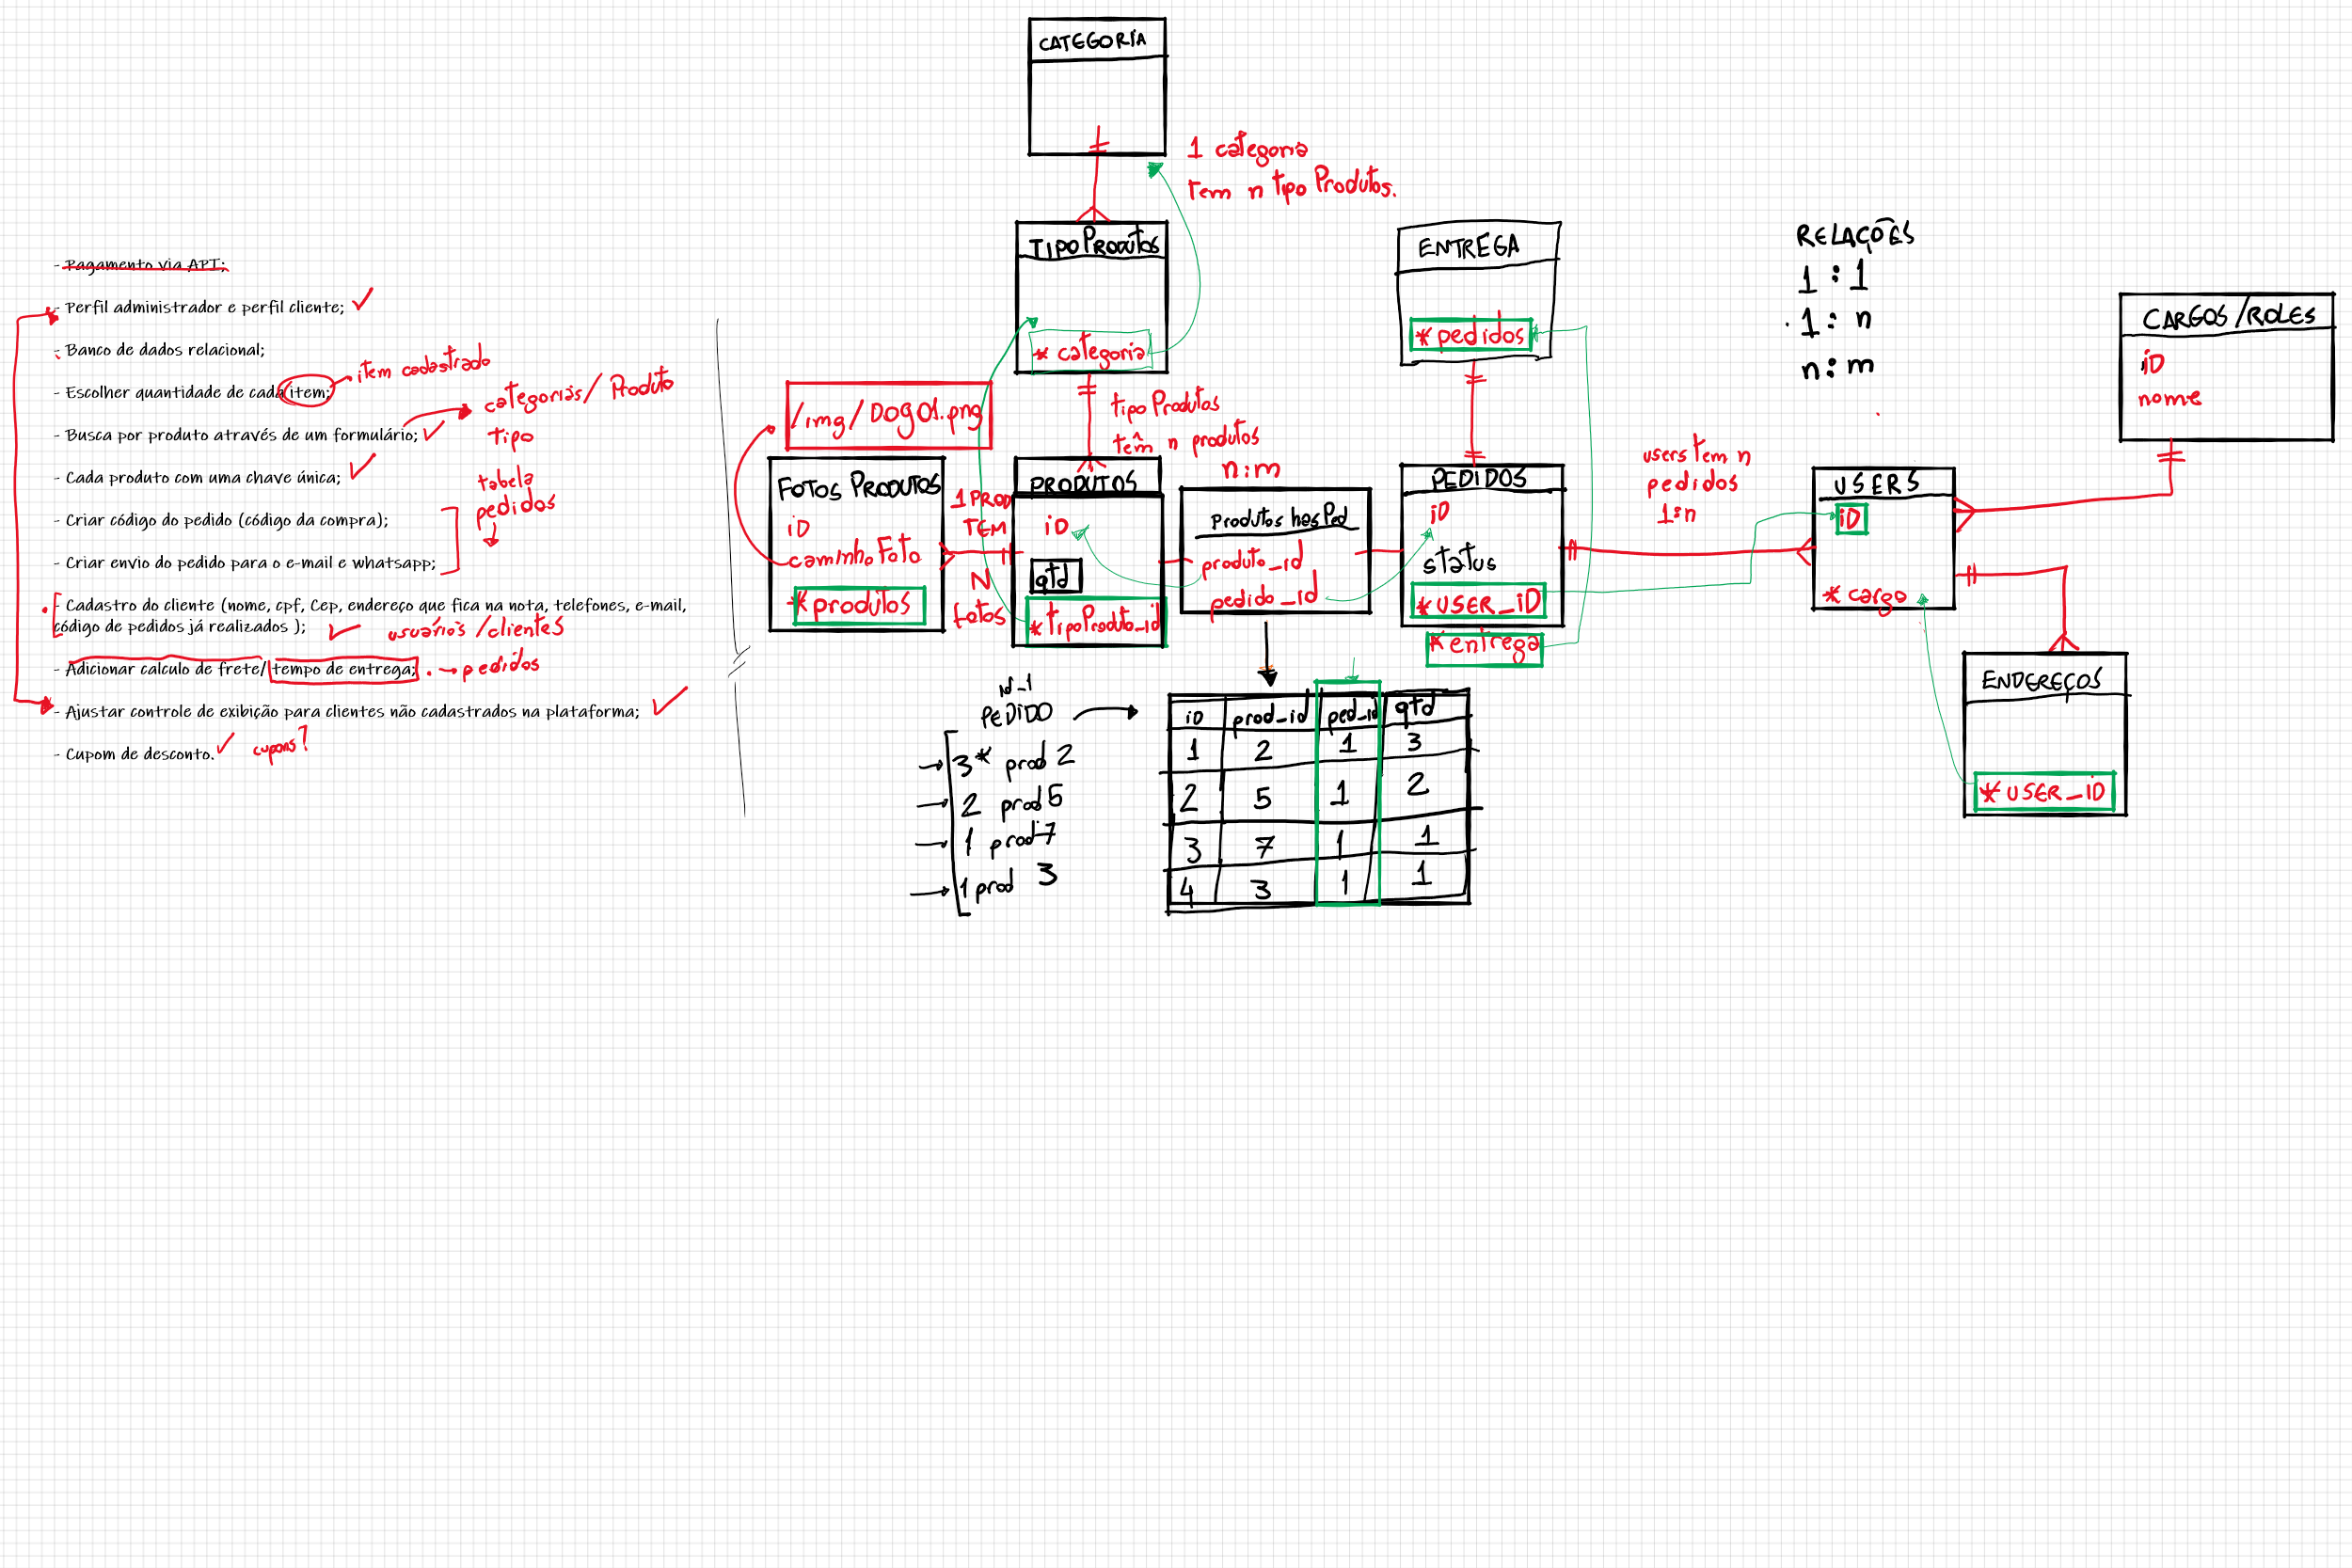 - Pagamento via API;
- Perfil administrador e perfil cliente;
- Banco de dados relacional;
- Escolher quantidade de cada item;
item cadastrado
- Busca por produto através de um formulário;
categorias/ Produto
tipo
- Cada produto com uma chave única;
tabela
pedidos
- Criar código do pedido (código da compra);
- Criar envio do pedido para o e-mail e whatsapp;
- Cadastro do cliente (nome, cpf, Cep, endereço que fica na nota, telefones, e-mail,
código de pedidos já realizados );
usuários /clientes
- Adicionar calculo de frete/ tempo de entrega;
pedidos
- Ajustar controle de exibição para clientes não cadastrados na plataforma;
- Cupom de desconto.
cupons?
CATEGORIA
1 categoria
tem n tipo Produtos.
TIPO Produtos
* categoria
tipo Produtos
têm n produtos
n:m
/img/DOG01.png
FOTOS PRODUTOS
iD
caminhoFoto
*produtos
1 PROD
TEM
N
fotos
PRODUTOS
iD
qtd
*tipoProduto_id
Produtos hasPed
produto_id
pedido_id
ENTREGA
* pedidos
PEDIDOS
iD
status
*USER_iD
*entrega
users tem n
pedidos
1:n
RELAÇÕES
1 : 1
1 : n
n : m
USERS
iD
* cargo
CARGOS /ROLES
iD
nome
ENDEREÇOS
* USER_iD
id_1
PEDIDO
3* prod 2
2 prod 5
1 prod 7
1 prod 3
iD prod_id ped_id qtd
1 2 1 3
2 5 1 2
3 7 1 1
4 3 1 1